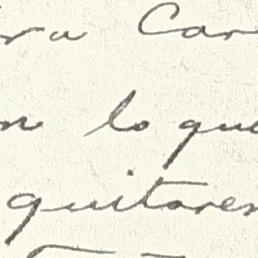 ra Car
n lo que
quitaren